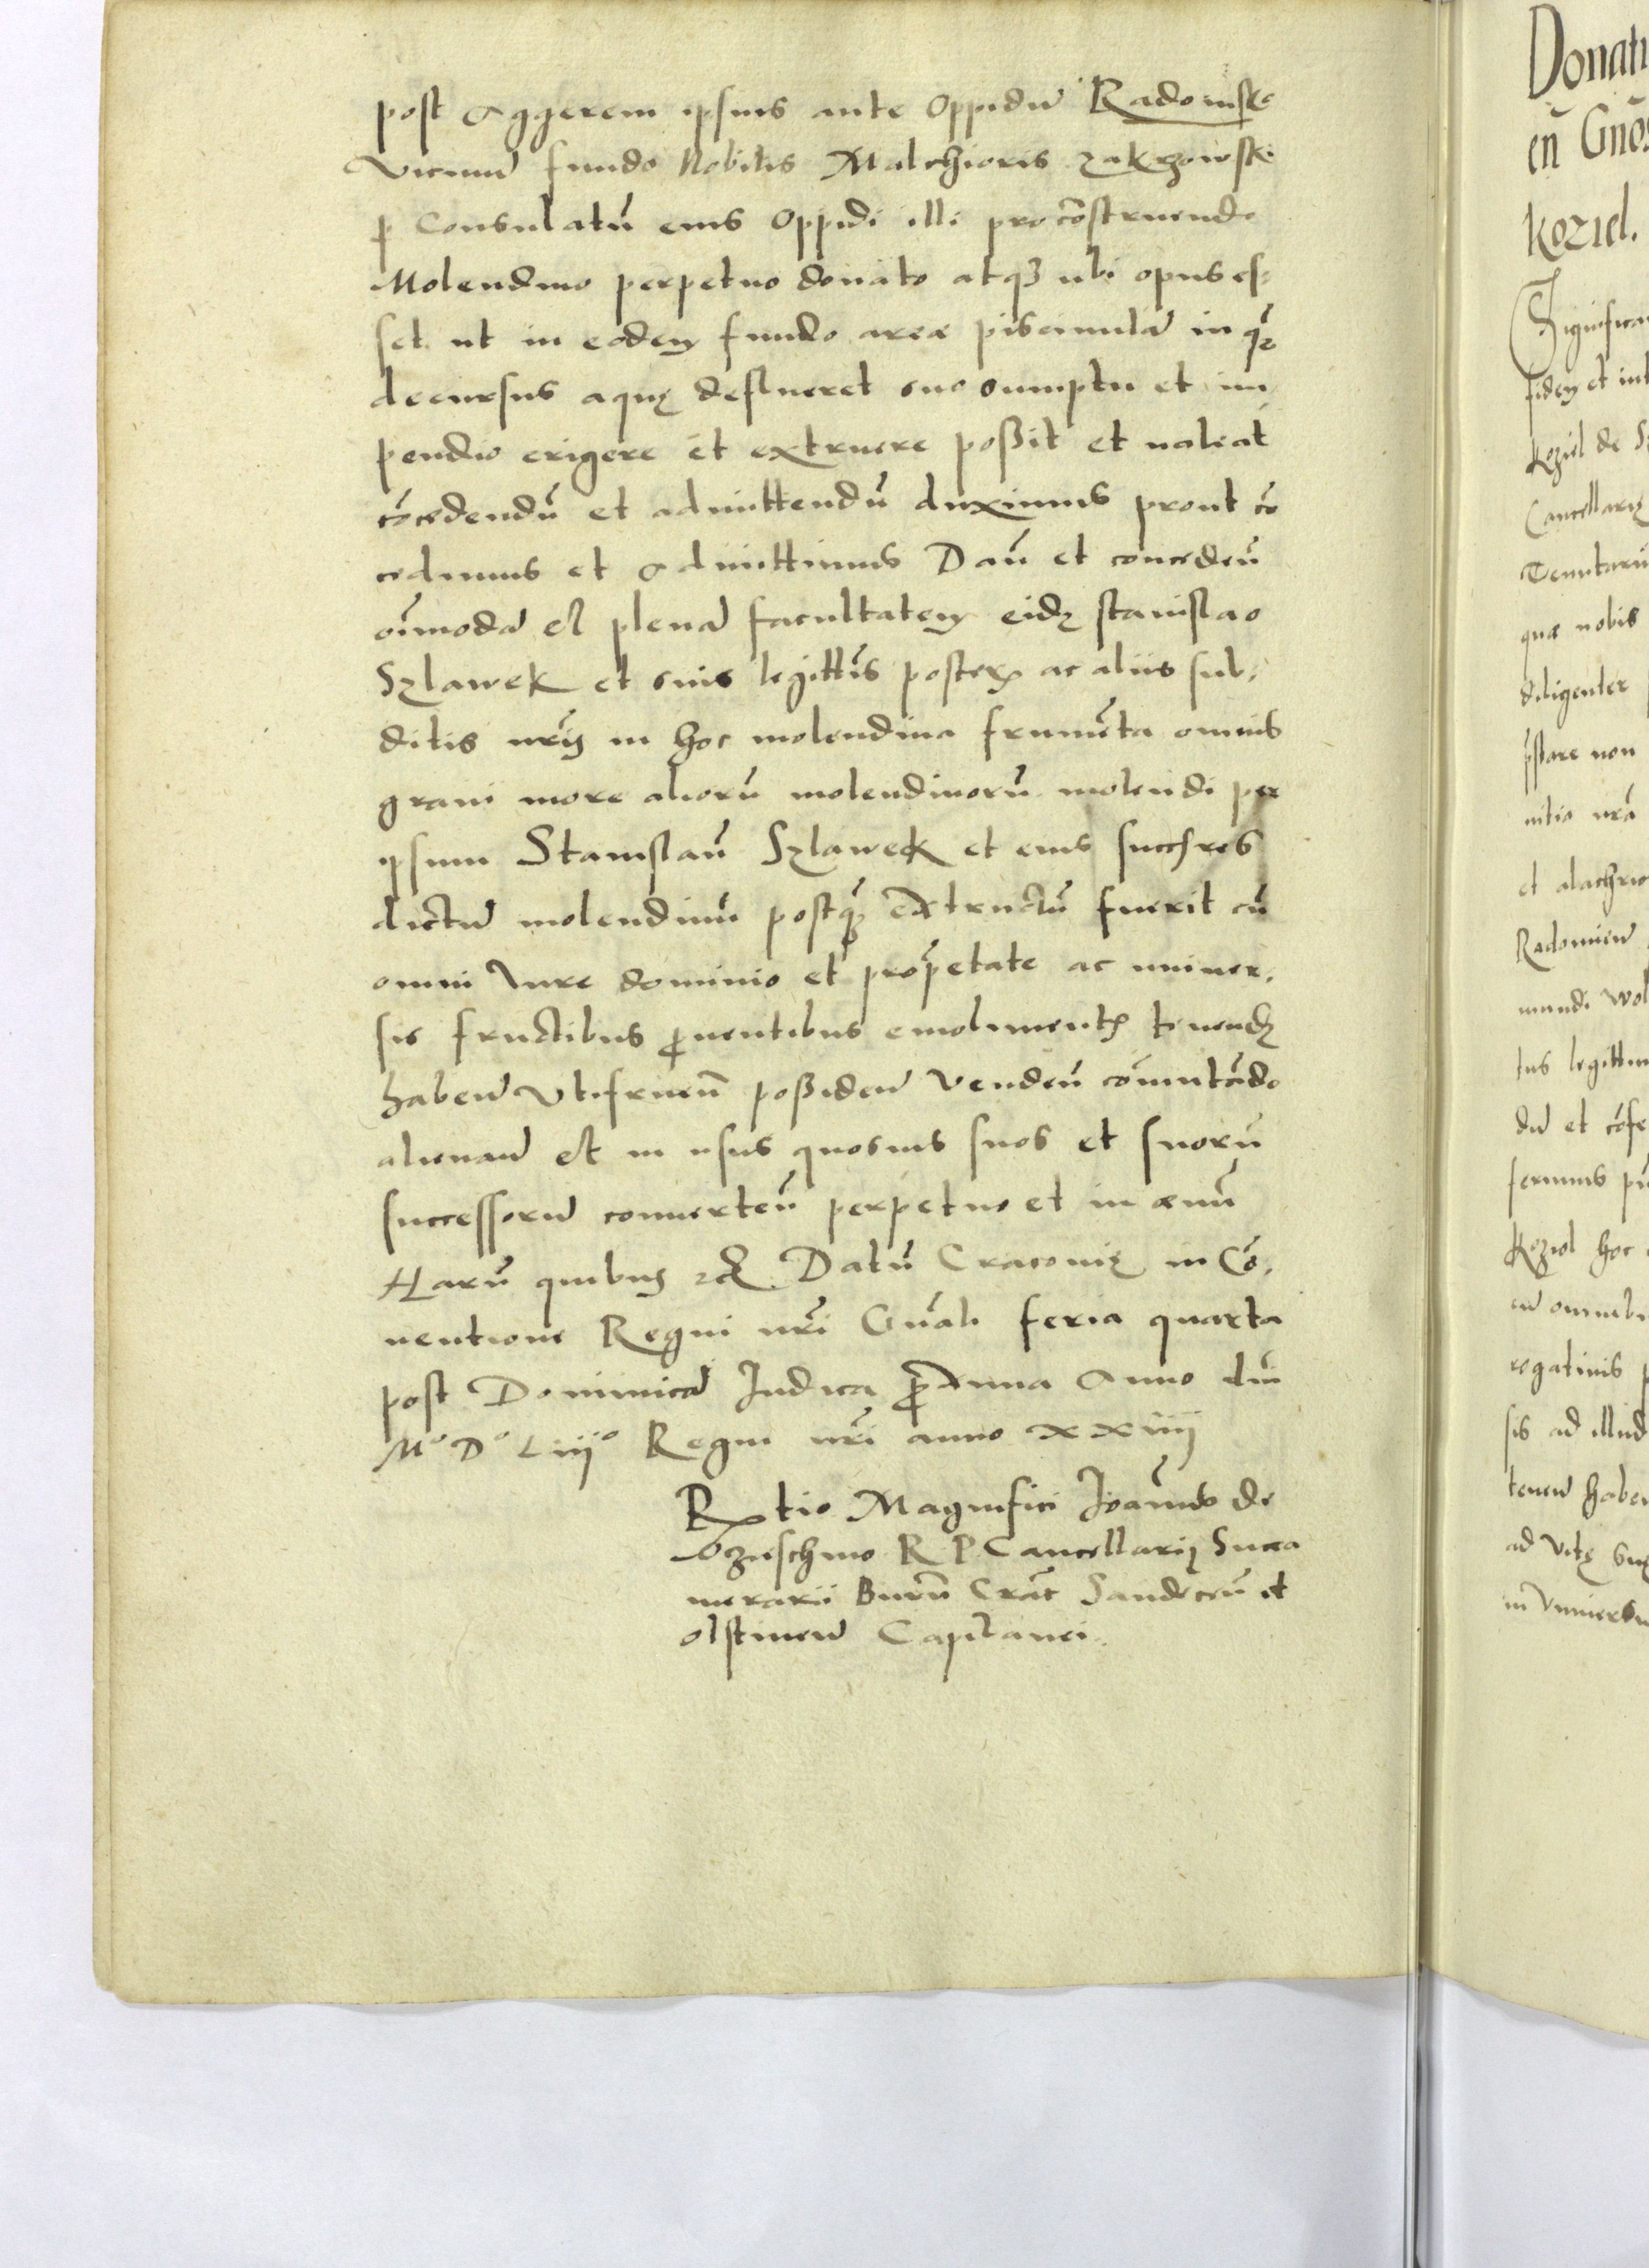 post Aggerem ipsius ante Oppidū Radomske
Vicinū fundo Nobilis Malchioris zakrzowski
p Consulatū eius Oppidi illi pro cōstruendo
Molendino perpetuo donato atqꝫ ubi opus es=
set ut in eodem fundo area pisciculā in qᷓ
decursus aquę deflueret suo sumptu et im
pendio erigere et extruere poßit et valeat
cōcedendū et admittendū duximus prout cō
cedimus et Admittimus Dañ et conceden̄
oīmodā et plenā facultatem eidꝫ stanislao
Szlawek et suis legittīs poster ac aliis sub,
ditis nr̄is in hoc molendino frumēta omnis
grani more aliorū molendinorū molendi per
ipsum Stanislaū Szlawek et eius succēres
dictū molendinū postqᷓ extructū fuerit cū
omni Iure dominio et propētate ac univer,
sis fructibus ꝓventibus emolument tenendꝫ
haben̄ Utifruen̄ poßiden̄ Venden̄ cōmutādo
alienan̄ et in usus quosvis suos et suorū
successorū converten̄ perpetuo et in aevū
Harū quibus etc Datū Cracovię in Cō,
ventione Regni nr̄i Gn̄ali feria quarta
post Dominicā Iudica ꝓxima Anno dn̄i
Mᵒ Dᵒ Liiijᵒ Regni nr̄i anno xxiiij
Rtio Magnifici Ioānnis de
Oczieschino R P Cancellarii Succa
merarii Burn̄ Crāc Sandecen̄ et
olstinen̄ Capitanei.
Donati
en̄ Gnos
koziel.
Significa
fidem et int
koziel de S
Cancellarię
Tenutariu
quae nobis
diligenter
p̄stare non
nitio nr̄a
et alachrio
Radomien̄
mundi Wol
tus legittim
dū et cōfe
ferimus
koziol hoc
cū omnibu
rogativis p
sis ad illud
tenen̄ haben
ad Vitę suę
in Universu